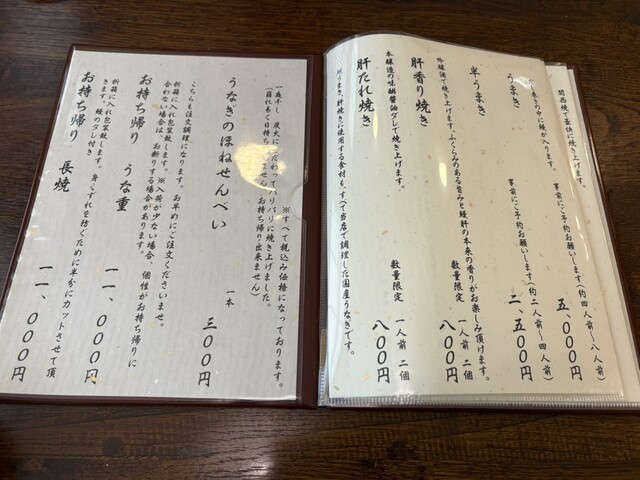 関西焼で豪快に焼きます。
事前にご予約お願いします(約四人前〜八人前)
五、〇〇〇円
うまき
だし巻きの中に鰻が入ります。
事前にご予約お願いします(約二人前〜四人前)
二、五〇〇円
半うまき
吟醸酒で焼き上げます。ふくらみのある旨みと鰻肝の本来の香りがお楽しみ頂けます。
肝香り焼き
数量限定 一人前 二個
八〇〇円
本醸造の味醂醤油ダレで焼き上げます。
肝たれ焼き
数量限定 一人前 二個
八〇〇円
※うまき、肝焼きに使用する食材も、すべて当店で調理した国産うなぎです。
※すべて税込み価格になっております。
一夜干し炭火にこだわってパリパリに焼き上げました。
うなぎのほねせんべい
一本
三〇〇円
こちらも注文調理になります。お早めにご注文くださいませ。
折箱に入れ包装致します。※入荷が少ない場合、個性がお持ち帰りに
合わない場合は、お断りする場合があります。
お持ち帰り うな重
一一、〇〇〇円
折箱に入れ包装致します。身くずれを防ぐために半分にカットさせて頂
きます。鰻のタレ付き
お持ち帰り 長焼
一一、〇〇〇円